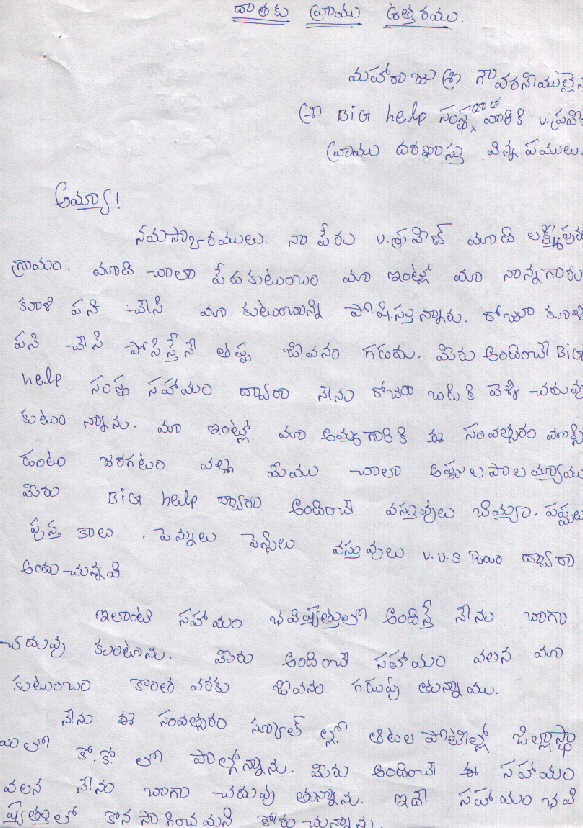 దాతకు వ్రాయు ఉత్తరము.
మహారాజు శ్రీ గౌవరనీయులైన
శ్రీ BiG help సంస్థ వారికి v.ప్రవీ
వ్రాయు దరఖాస్తు విన్నపములు.
అమ్మా!
నమస్కారములు. నా పేరు v.ప్రవీణ్ మాది లక్ష్మీపుర
గ్రామం. మాది చాలా పేదకుటుంబం మా ఇంట్లో మా నాన్నగారు
కూలి పని చేసి మా కుటుంబాన్ని పోషిస్తున్నారు. రోజూ కూలి
పని చేసి పోషిస్తేనే తప్ప జీవనం గడదు. మీరు అందించే BiG
help సంస్థ సహాయం ద్వారా నేను రోజూ బడికి వెళ్ళి చదువు
కుంటున్నాను. మా ఇంట్లో మా అమ్మగారికి ఈ సంవత్సరం
జరగటం వల్ల మేము చాలా అప్పుల పాలయ్యాము
మీరు BiG help ద్వారా అందించే వస్తువులు బియ్యం. పప్పు
పుస్తకాలు. పెన్నులు పెన్సీలు వస్తువులు v.v.s ద్వారా
అందుచున్నవి
ఇలాంటి సహాయం భవిష్యత్తులో అందిస్తే నేను బాగా
చదువు కుంటాను. మీరు అందించే సహాయం వలన మా
కుటుంబం కొంత వరకు జీవనం గడుపు తున్నాము.
నేను ఈ సంవత్సరం స్కూల్ల్లో ఆటల పోటీల్లో జిల్లాస్థా
యిలో కో.కో లో పాల్గోన్నాను. మీరు అందించే ఈ సహాయం
వలన నేను బాగా చదువు తున్నాను. ఇదే సహాయం భవి
ష్యత్తులో కొన సాగించమని కోరు చున్నాను.